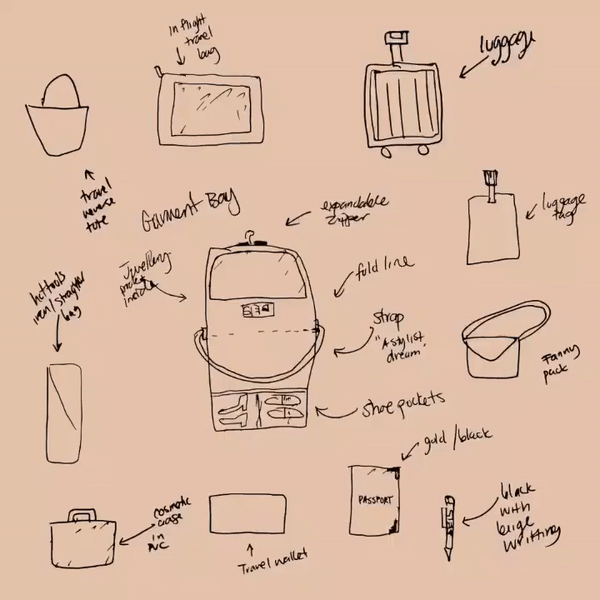 in flight
travel
bag
luggage
travel
reverse
tote
Garment Bag
expandable
zipper
luggage
tag
Jwellery
inside
fold line
hottools
iron/straighter
bag
strap
"A stylist
dream"
Fanny
pack
shoe pockets
gold/black
PASSPORT
cosmetic
case
in
PVC
Travel wallet
black
with
beige
writting